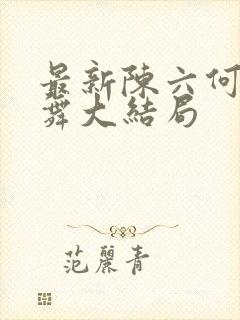 最新陳六何
舞大結局
范麗青